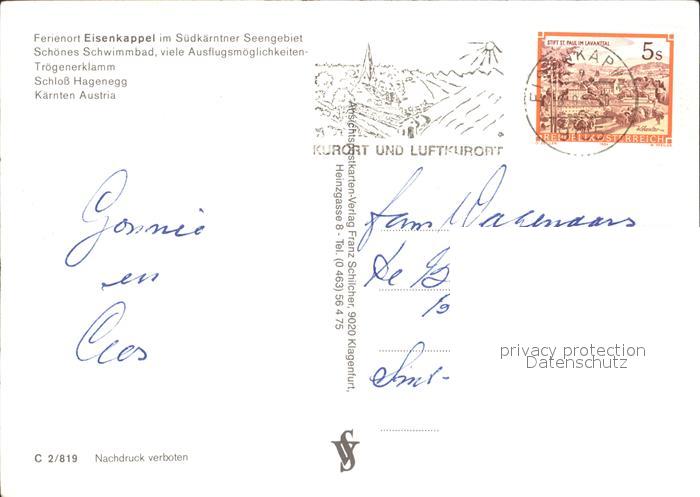 Ferienort Eisenkappel im Südkärntner Seengebiet
Schönes Schwimmbad, viele Ausflugsmöglichkeiten-
Trögenerklamm
Schloß Hagenegg
Kärnten Austria
KURORT UND LUFTKURORT
STIFT ST. PAUL IM LAVANTTAL
5s
REPUBLIK ÖSTERREICH
Gonnie
en
Cees
Ansichtspostkarten-Verlag Franz Schilcher, 9020 Klagenfurt,
Heinzgasse 8 - Tel. (0 463) 56 4 75
fam
De B
19
Sint-
privacy protection
Datenschutz
C 2/819 Nachdruck verboten